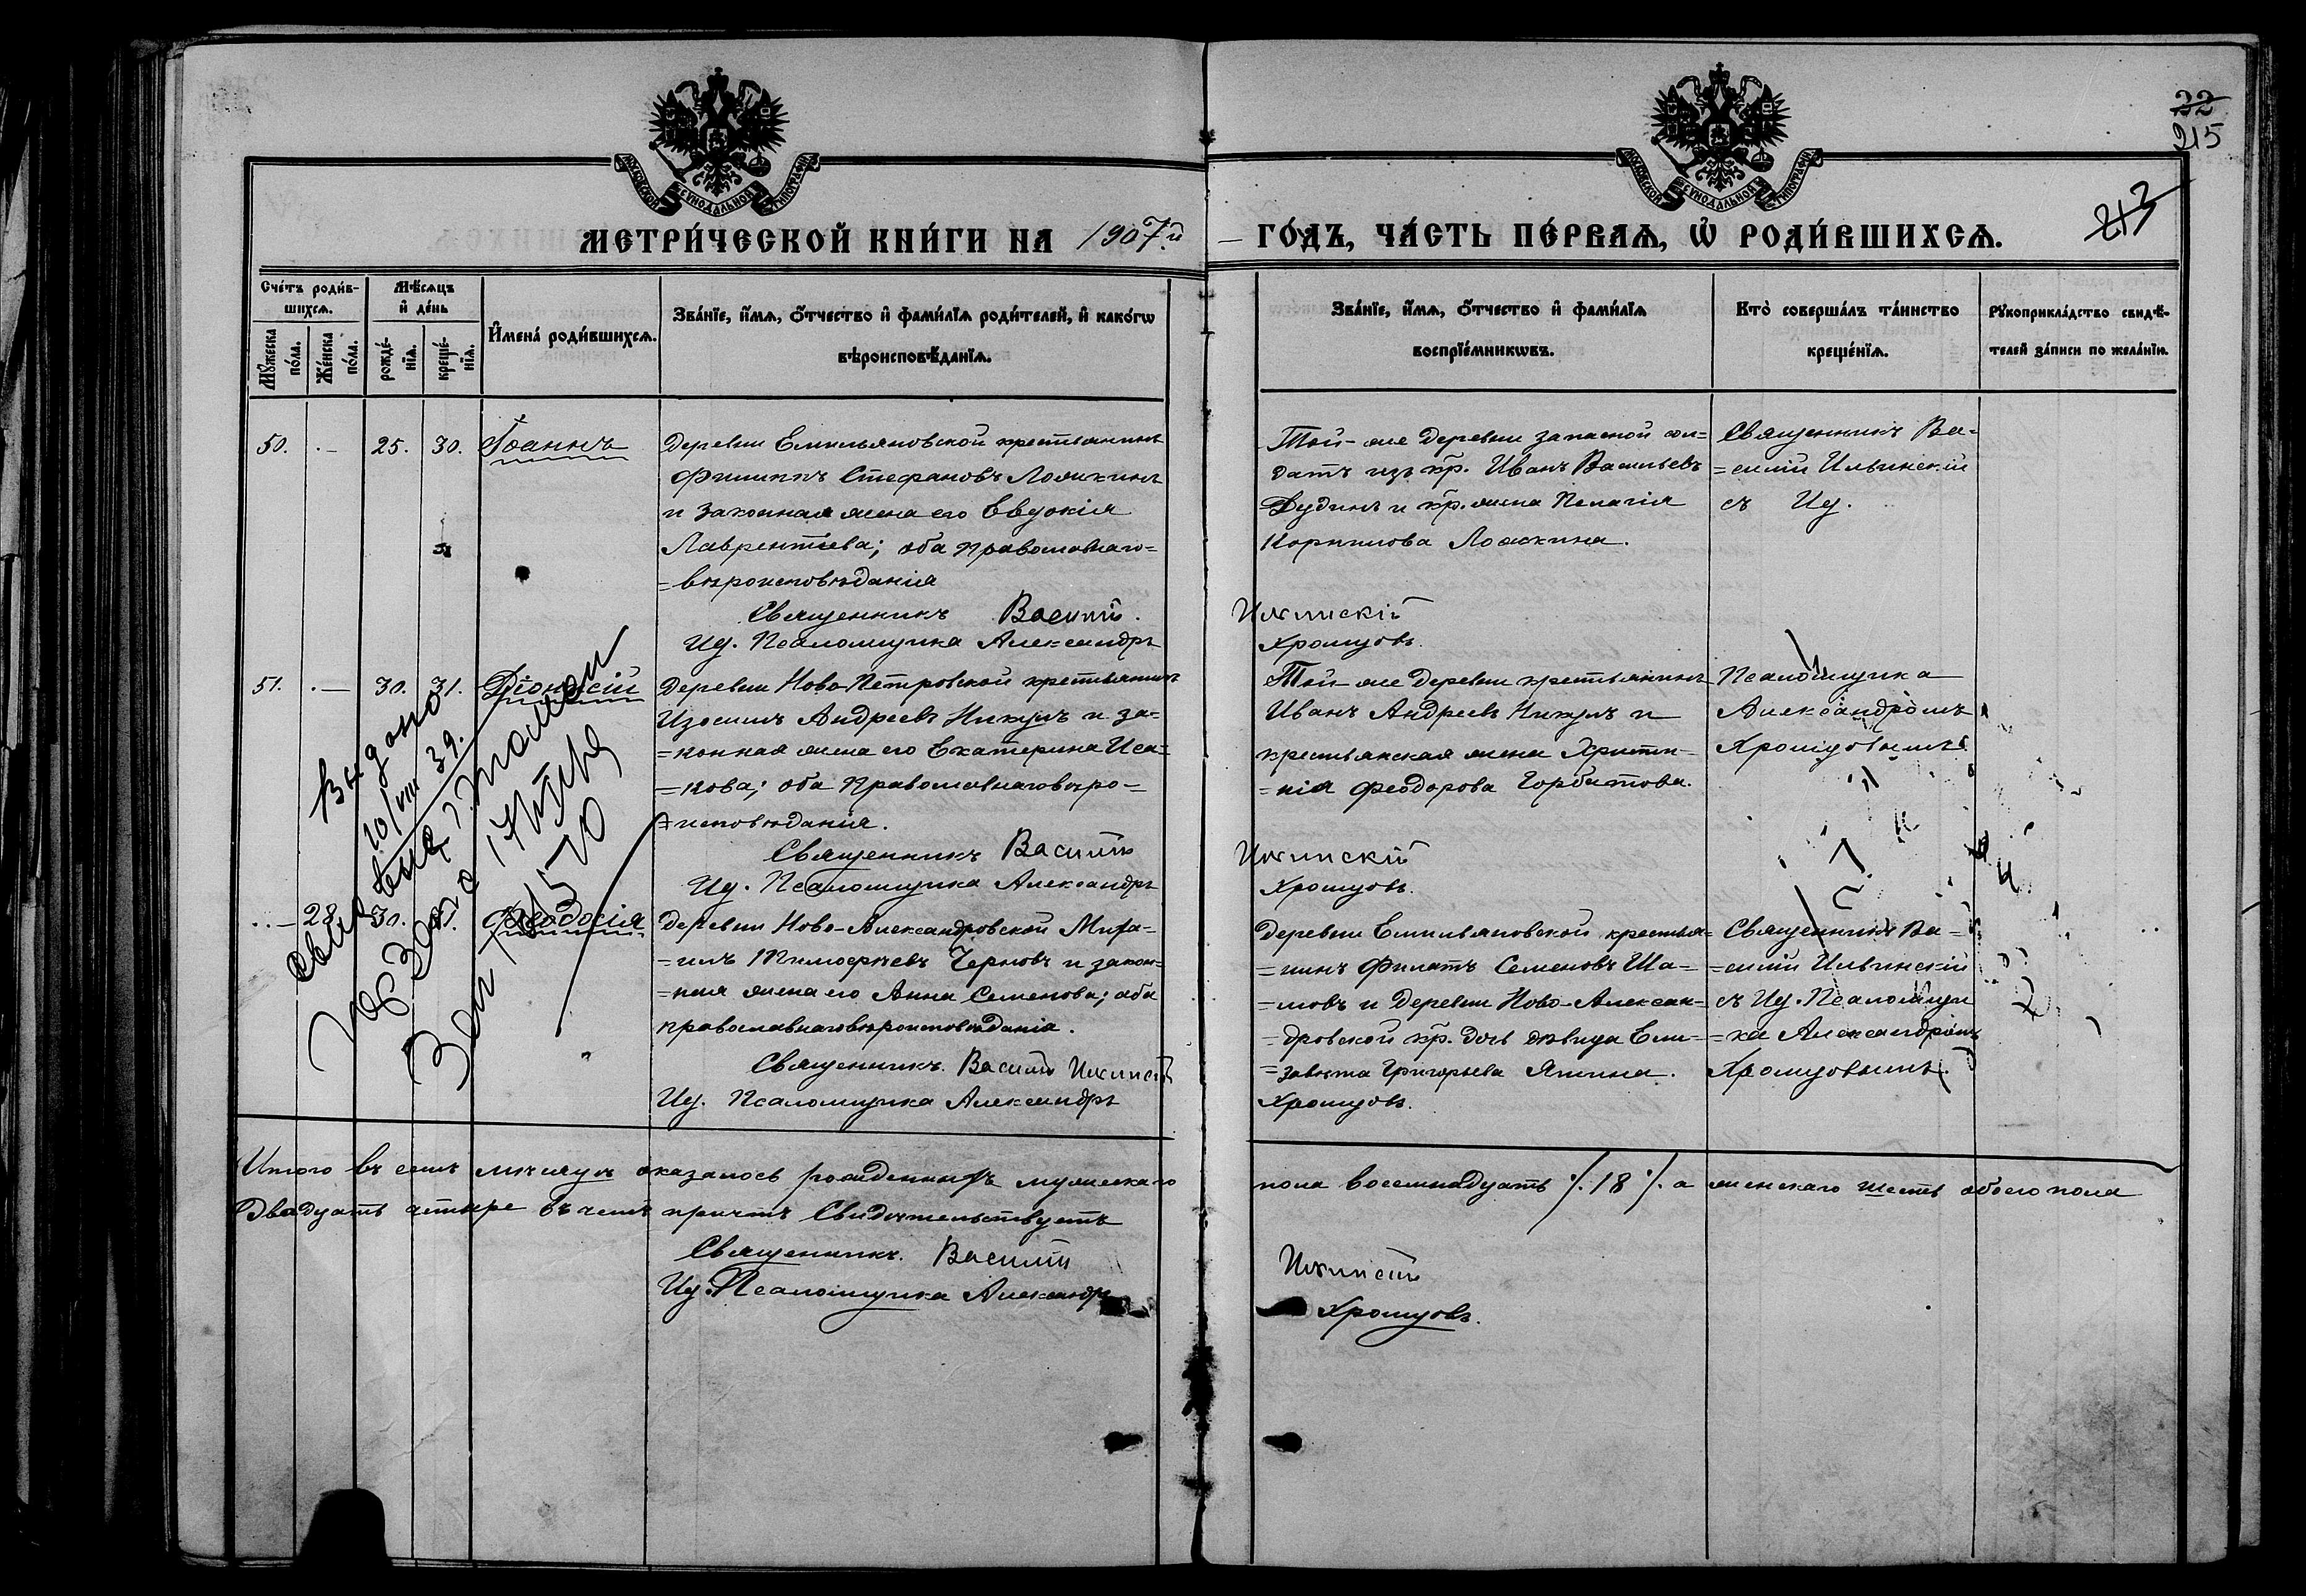 МОСКОВСКОЙ СѴНОДАЛЬНОЙ ТИПОГРАФІИ
МОСКОВСКОЙ СѴНОДАЛЬНОЙ ТИПОГРАФІИ
22
215
213
МЕТРИ́ЧЕСКОЙ КНИ́ГИ НА 1907й ГО́ДЪ, ЧА́СТЬ ПЕ́РВАѦ, Ѡ҆ РОДИ́ВШИХСѦ.
Сче́тъ роди́в-
шихсѧ.
Мꙋ́жеска по́ла.
Же́нска по́ла.
Мѣ́сѧцъ
и҆ де́нь
рожде́-
нїѧ.
креще́-
нїѧ.
И҆мена̀ роди́вшихсѧ.
Зва́нїе, и҆́мѧ, ѻ҆́тчество и҆ фами́лїѧ роди́телей, и҆ како́гѡ
вѣроисповѣ́данїѧ.
Зва́нїе, и҆́мѧ, ѻ҆́тчество и҆ фами́лїѧ
воспрїе́мникѡвъ.
Кто̀ соверша́лъ та́инство
креще́нїѧ.
Рꙋкоприкла́дство свидѣ́-
телей за́писи по жела́нїю.
50. - 25. 30. Іоаннъ
Деревни Емильяновской крестьянинъ
Филиппъ Стефановъ Ложкинъ
и законная жена его Евдокія
Лаврентьева; оба православнаго=
=вѣроисповѣданія
Священникъ Василій
Ид. Псаломщика Александръ
Той-же деревни запасной сол=
датъ изъ кр. Иванъ Васильевъ
Дудинъ и кр. жена Пелагія
Корнилова Ложкина.
Ильинскій
Хромцовъ.
Священникъ Ва=
=силій Ильинскій
съ Ид.
51. - 30. 31. Діонисій
Деревни Ново-Петровской крестьянинъ
Изосимъ Андреевъ Никулъ и за=
=конная жена его Екатерина Иса=
=кова; оба православнаговѣро=
=исповѣданія.
Священникъ Василій
Ид. Псаломщика Александръ
Той-же деревни крестьянинъ
Иванъ Андреевъ Никулъ и
крестьянская жена Христи=
=нія Феодорова Горбатова.
Ильинскій
Хромцовъ.
Псаломщика
Александромъ
Хромцовымъ.
Выдано
10/VIII 39.
- 28. 30. Феодосія
Деревни Ново-Александровской Миха=
=илъ Тимофѣевъ Черновъ и закон=
=ная жена его Анна Семенова; оба
православнаговѣроисповѣданія.
Священникъ Василій Ильинскій
Ид. Псаломщика Александръ
Деревни Емильяновской крестья=
=нинъ Филатъ Семеновъ Ша=
=мовъ и деревни Ново-Алексан=
=дровской кр. дочь дѣвица Ели=
=завета Григорьева Яшина.
Хромцовъ.
Священникъ Ва=
=силій Ильинскій
съ Ид. Псаломщи
=ка Александромъ
Хромцовымъ.
Итого въ семъ мѣсяцѣ оказалось рожденныхъ мужескаго пола восемнадцать ·/. 18 ·/. а женскаго шесть обоего пола
Двадцать четыре въ чемъ причтъ Свидѣтельствуетъ
Священникъ. Василій Ильинскій
Ид. Псаломщика Александръ Хромцовъ.